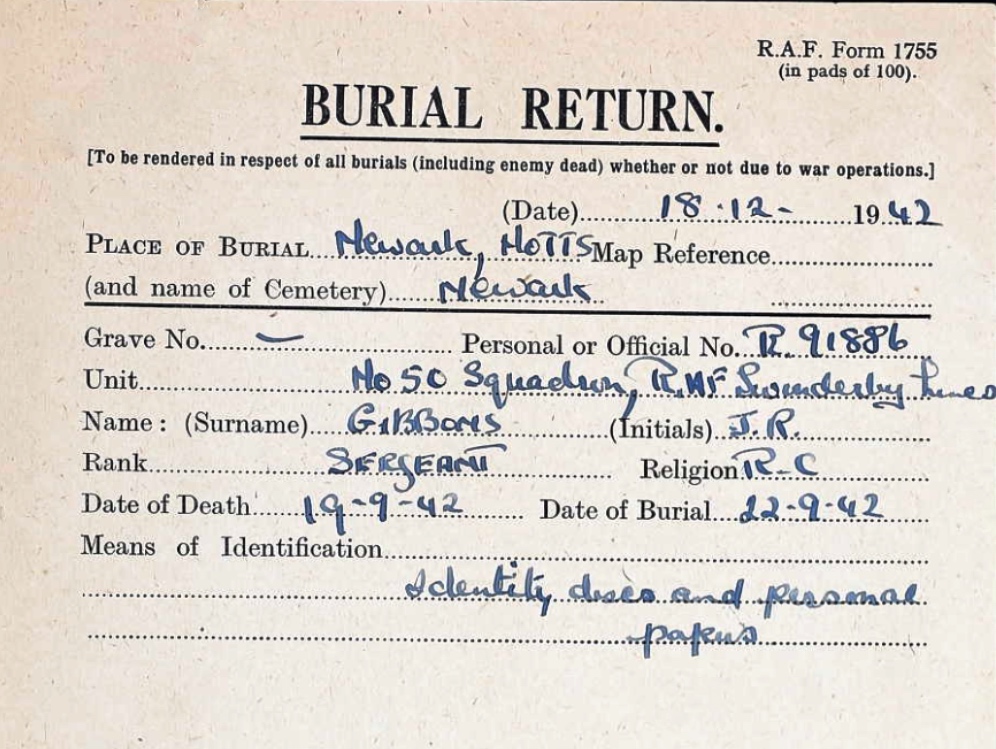 R.A.F. Form 1755
(in pads of 100).
BURIAL RETURN.
[To be rendered in respect of all burials (including enemy dead) whether or not due to war operations.]
(Date) 18.12- 1942
PLACE OF BURIAL Newark, NOTTS Map Reference
(and name of Cemetery) Newark
Grave No. — Personal or Official No. R.91886
Unit No 50 Squadron, RAF Swinderby Lincs
Name: (Surname) GIBBONS (Initials) J.R.
Rank SERGEANT Religion R-C
Date of Death 19-9-42 Date of Burial 22-9-42
Means of Identification
Identity discs and personal
papers